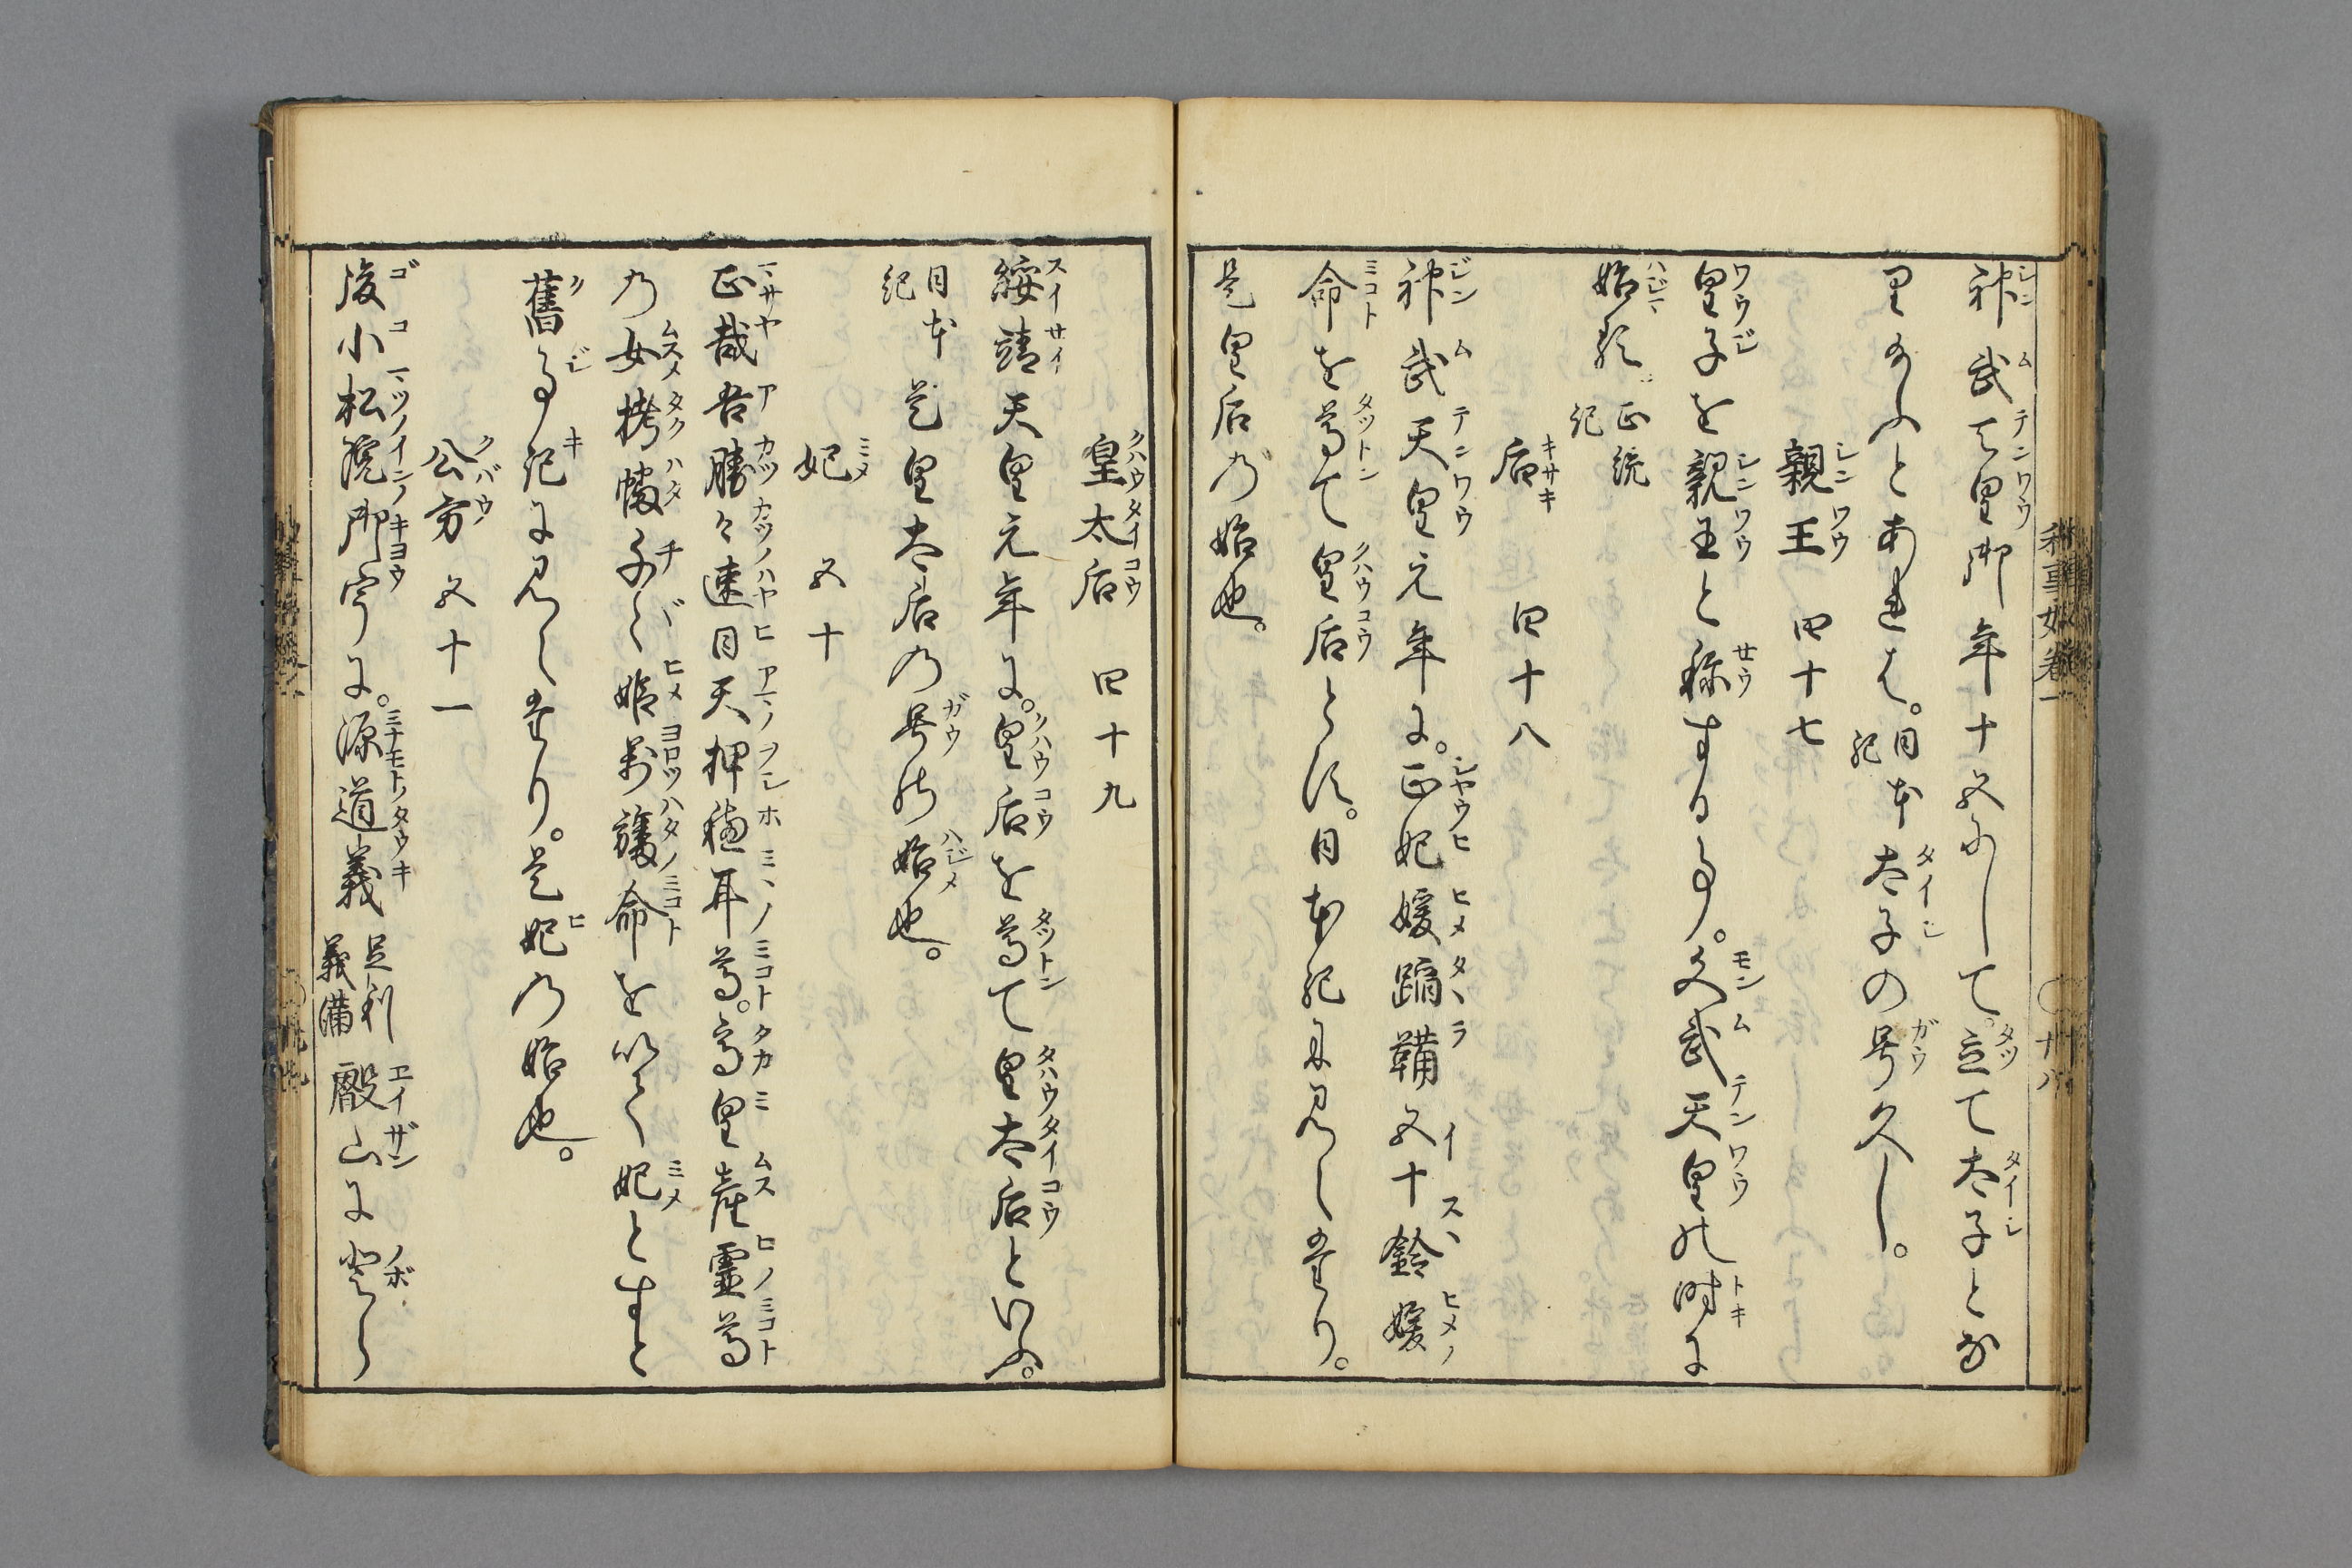 神武天皇御年十五にして。立て太子とな
り給ふとあれは。日本紀 太子の号久し。
親王 四十七
皇子を親王と称する事。文武天皇の時に
始る 正統記
后 四十八
神武天皇元年に。正妃媛蹈鞴五十鈴媛
命を尊て皇后とす。日本紀に見へたり。
是皇后の始也。
皇太后 四十九
綏靖天皇元年に。皇后を尊て皇太后といふ。
日本紀 是皇太后の号の始也。
妃 五十
正哉吾勝々速日天押穂耳尊。高皇産霊尊
の女栲幡千々姫万幡命を以て妃とすと
舊事記に見へたり。是妃の始也。
公方 五十一
後小松院御宇に。源道義 足利義満 叡山に登ら